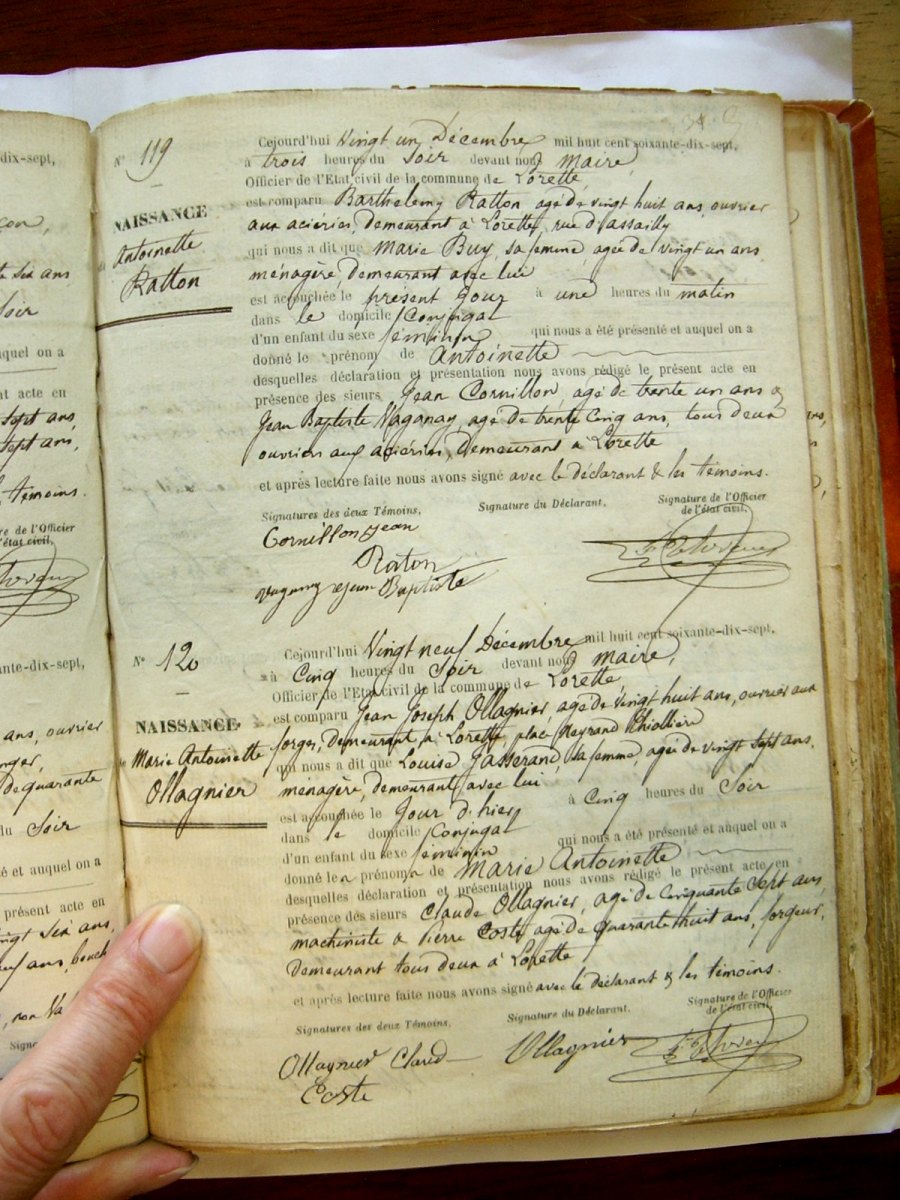 dix-sept,
con,
te six ans
soir
auquel on a
nt acte en
sept ans,
sept ans,
témoins.
re de l'Officier
l'état civil,
ante-dix-sept,
ans, ouvrier
de quarante
du Soir
té et auquel on a
présent acte en
ingt six ans,
uf ans,
, non
Signa
N° 119
NAISSANCE
de Antoinette
Ratton
Cejourd'hui Vingt un Décembre mil huit cent soixante-dix-sept,
à trois heures du Soir devant nous maire,
Officier de l'Etat civil de la commune de Lorette,
est comparu Barthelemy Ratton agé de vingt huit ans, ouvrier
aux aciéries, demeurant à Lorette, rue d'assailly
qui nous a dit que Marie Buy, sa femme, agée de vingt un ans
ménagère, demeurant avec lui
est accouchée le présent jour à une heures du matin
dans le domicile Conjugal
d'un enfant du sexe féminin qui nous a été présenté et auquel on a
donné le prénom de Antoinette
desquelles déclaration et présentation nous avons rédigé le présent acte en
présence des sieurs Jean Cornillon, agé de trente un ans &
Jean Baptiste Vaganay, agé de trente Cinq ans, tous deux
ouvriers aux aciéries, Demeurant à Lorette
et après lecture faite nous avons signé avec le déclarant & les témoins.
Signatures des deux Témoins, Signature du Déclarant, Signature de l'Officier
de l'état civil,
Cornillon jean
Raton
vaganay jean Baptiste
N° 120
NAISSANCE
de Marie Antoinette
Ollagnier
Cejourd'hui Vingt neuf Décembre mil huit cent soixante-dix-sept,
à Cinq heures du Soir devant nous maire,
Officier de l'Etat civil de la commune de Lorette,
est comparu Jean Joseph Ollagnier, agé de vingt huit ans, ouvrier aux
forges, demeurant à Lorette place Neyrand Thiollière
qui nous a dit que Louise Gasserand, sa femme, agée de vingt sept ans,
ménagère, demeurant avec lui
est accouchée le jour d'hier à Cinq heures du Soir
dans le domicile Conjugal
d'un enfant du sexe féminin qui nous a été présenté et auquel on a
donné le prénom de Marie Antoinette
desquelles déclaration et présentation nous avons rédigé le présent acte en
présence des sieurs Claude Ollagnier, agé de Cinquante Sept ans,
machiniste & Pierre Coste agé de quarante huit ans, forgeur,
Demeurant tous deux à Lorette
et après lecture faite nous avons signé avec le déclarant & les témoins.
Signatures des deux Témoins, Signature du Déclarant, Signature de l'Officier
de l'état civil,
Ollagnier Claud Ollagnier
Coste